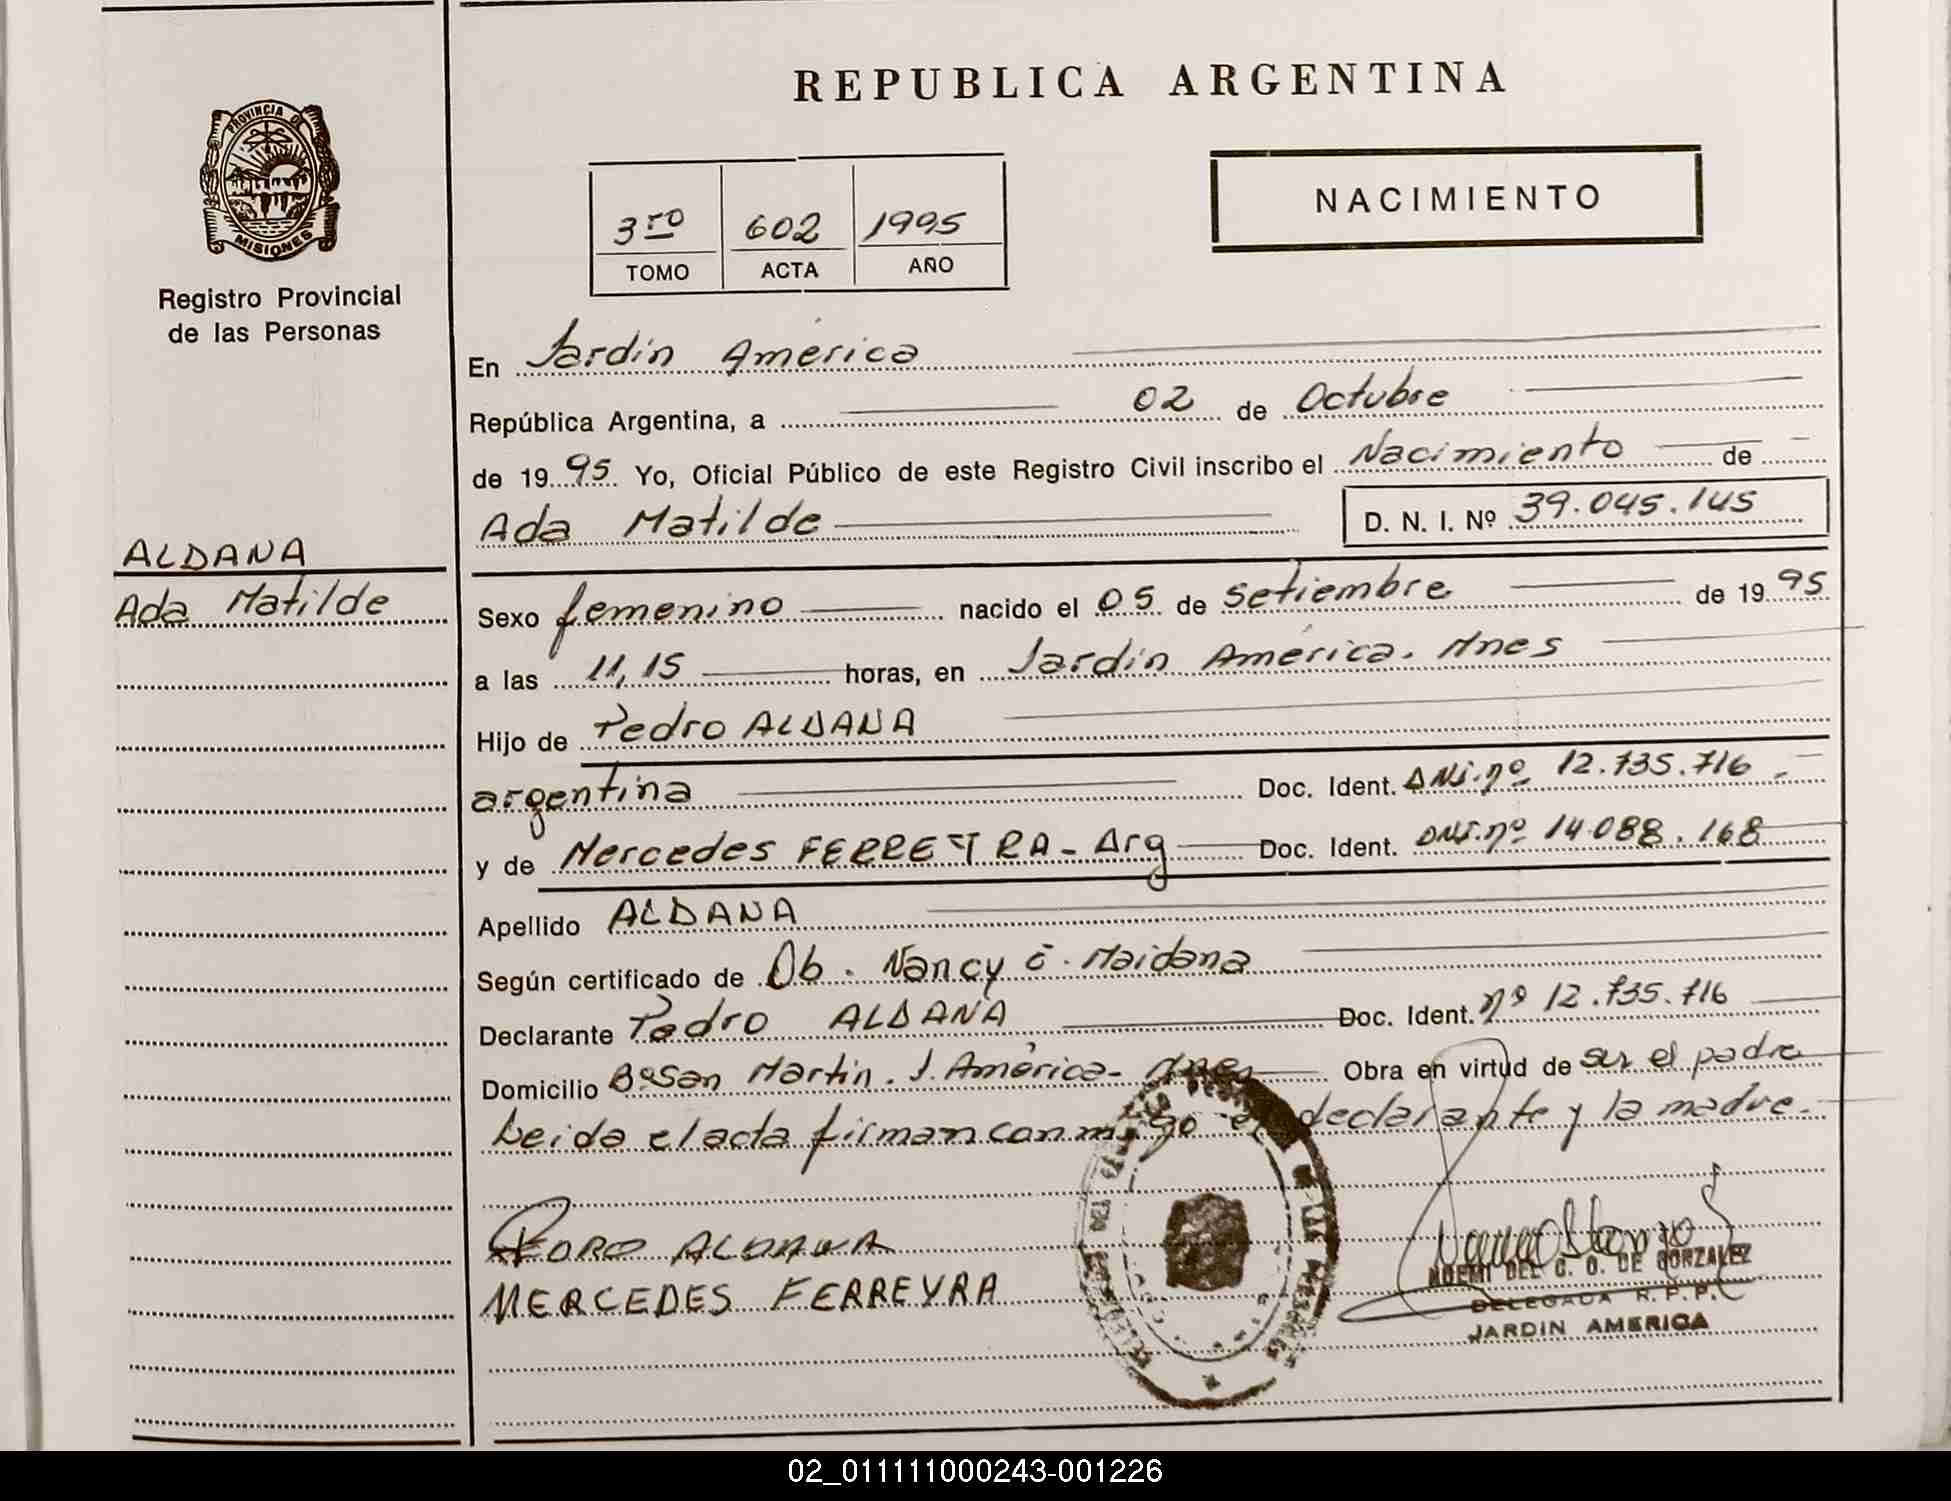 REPUBLICA ARGENTINA
PROVINCIA DE
MISIONES
Registro Provincial
de las Personas
3ro 602 1995
TOMO ACTA AÑO
NACIMIENTO
En Jardín América
República Argentina, a 02 de Octubre
de 1995 Yo, Oficial Público de este Registro Civil inscribo el Nacimiento de
Ada Matilde D. N. I. Nº 39.045.145
ALDANA
Ada Matilde
Sexo femenino nacido el 05 de Setiembre de 1995
a las 11,15 horas, en Jardín América. Mnes
Hijo de Pedro ALDANA
argentina Doc. Ident. DNI.nº 12.735.716
y de Mercedes FERREYRA - Arg Doc. Ident. DNI.nº 14.088.168
Apellido ALDANA
Según certificado de Ob. Nancy C. Maidana
Declarante Pedro ALDANA Doc. Ident. nº 12.735.716
Domicilio Bº San Martín. J. América- Mnes Obra en virtud de ser el padre
Leida el acta firman conmigo el declarante y la madre.
PEDRO ALDANA
MERCEDES FERREYRA
NOEMI DEL C. O. DE GONZALEZ
DELEGADA R.P.P.
JARDIN AMERICA
02_011111000243-001226